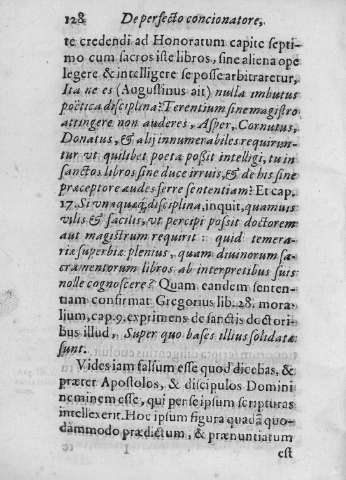 128 De perfecto concionatore,
te credendi ad Honoratum capite septi-
mo cum sacros iste libros, sine aliena ope
legere & intelligere se posse arbitraretur,
Ita ne es (Augustinus ait) nulla imbutus
poëtica disciplina? Terentium sine magistro
attingere non auderes, Asper, Cornutus,
Donatus, & alij innumerabiles requirun-
tur vt quilibet poeta possit intelligi, tu in
sanctos libros sine duce irruis, & de his sine
præceptore audes ferre sententiam? Et cap.
17. Si vnaquæq; disciplina, inquit, quamuis
vilis & facilis, vt percipi possit doctorem
aut magistrum requirit: quid temera-
riæ superbiæ plenius, quam diuinorum sa-
cramentorum libros ab interpretibus suis
nolle cognoscere? Quam eandem senten-
tiam confirmat Gregorius lib. 28. mora-
lium, cap. 9. exprimens de sanctis doctori-
bus illud, Super quo bases illius solidatæ
sunt.
Vides iam falsum esse quod dicebas, &
præter Apostolos, & discipulos Domini
neminem esse, qui per se ipsum scripturas
intellexerit. Hoc ipsum figura quadā quo-
dāmmodo prædictum, & prænuntiatum
I est